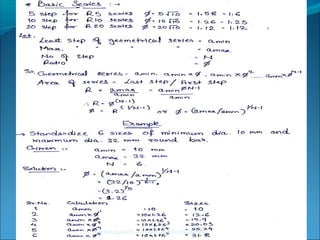 * Basic Series :- →
5 Step for R5 series ϕ = 5√10 = 1.58 - 1.6
10 Step for R10 Series ϕ = 10√10 = 1.26 - 1.25
20 Step for R20 Series ϕ = 20√10 = 1.12 - 1.12
Let,
Least step of geometrical series = amin
Max. " " " = amax
No of step = N
Ratio = ϕ
So Geometrical series = amin, amin×ϕ, amin×ϕ², amin×ϕ^(N-1)
Area of series = Last step / First step
R = amax/amin = amin ϕ^(N-1)/amin
∴ R = ϕ^(N-1)
ϕ = R^(1/N-1) or ϕ = (amax/amin)^(1/N-1)
Example
→ Standardize 6 sizes of minimum dia. 10 mm and
maximum dia. 32 mm round bar.
Given :- amin = 10 mm
amax = 32 mm
N = 6
Solution :- ϕ = (amax/amin)^(1/N-1)
= (32/10)^(1/6-1)
= (3.2)^(1/5)
= 1.26
Sr.No. Calculation Sizes
1 amin =10 = 10
2 amin×ϕ =10×1.26 = 12.6
3 amin×ϕ² =10×1.26² = 15.9
4 amin×ϕ³ =10×1.26³ = 20.05
5 amin×ϕ⁴ =10×1.26⁴ = 25.29
6 amin×ϕ⁵ =10×1.26⁵ = 31.8